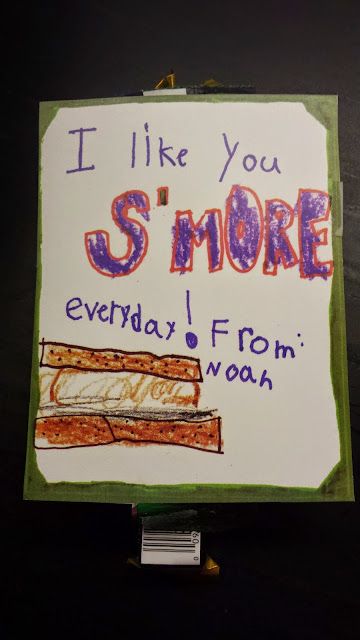 I like you
S'MORE
everyday! From:
Noah
0 09